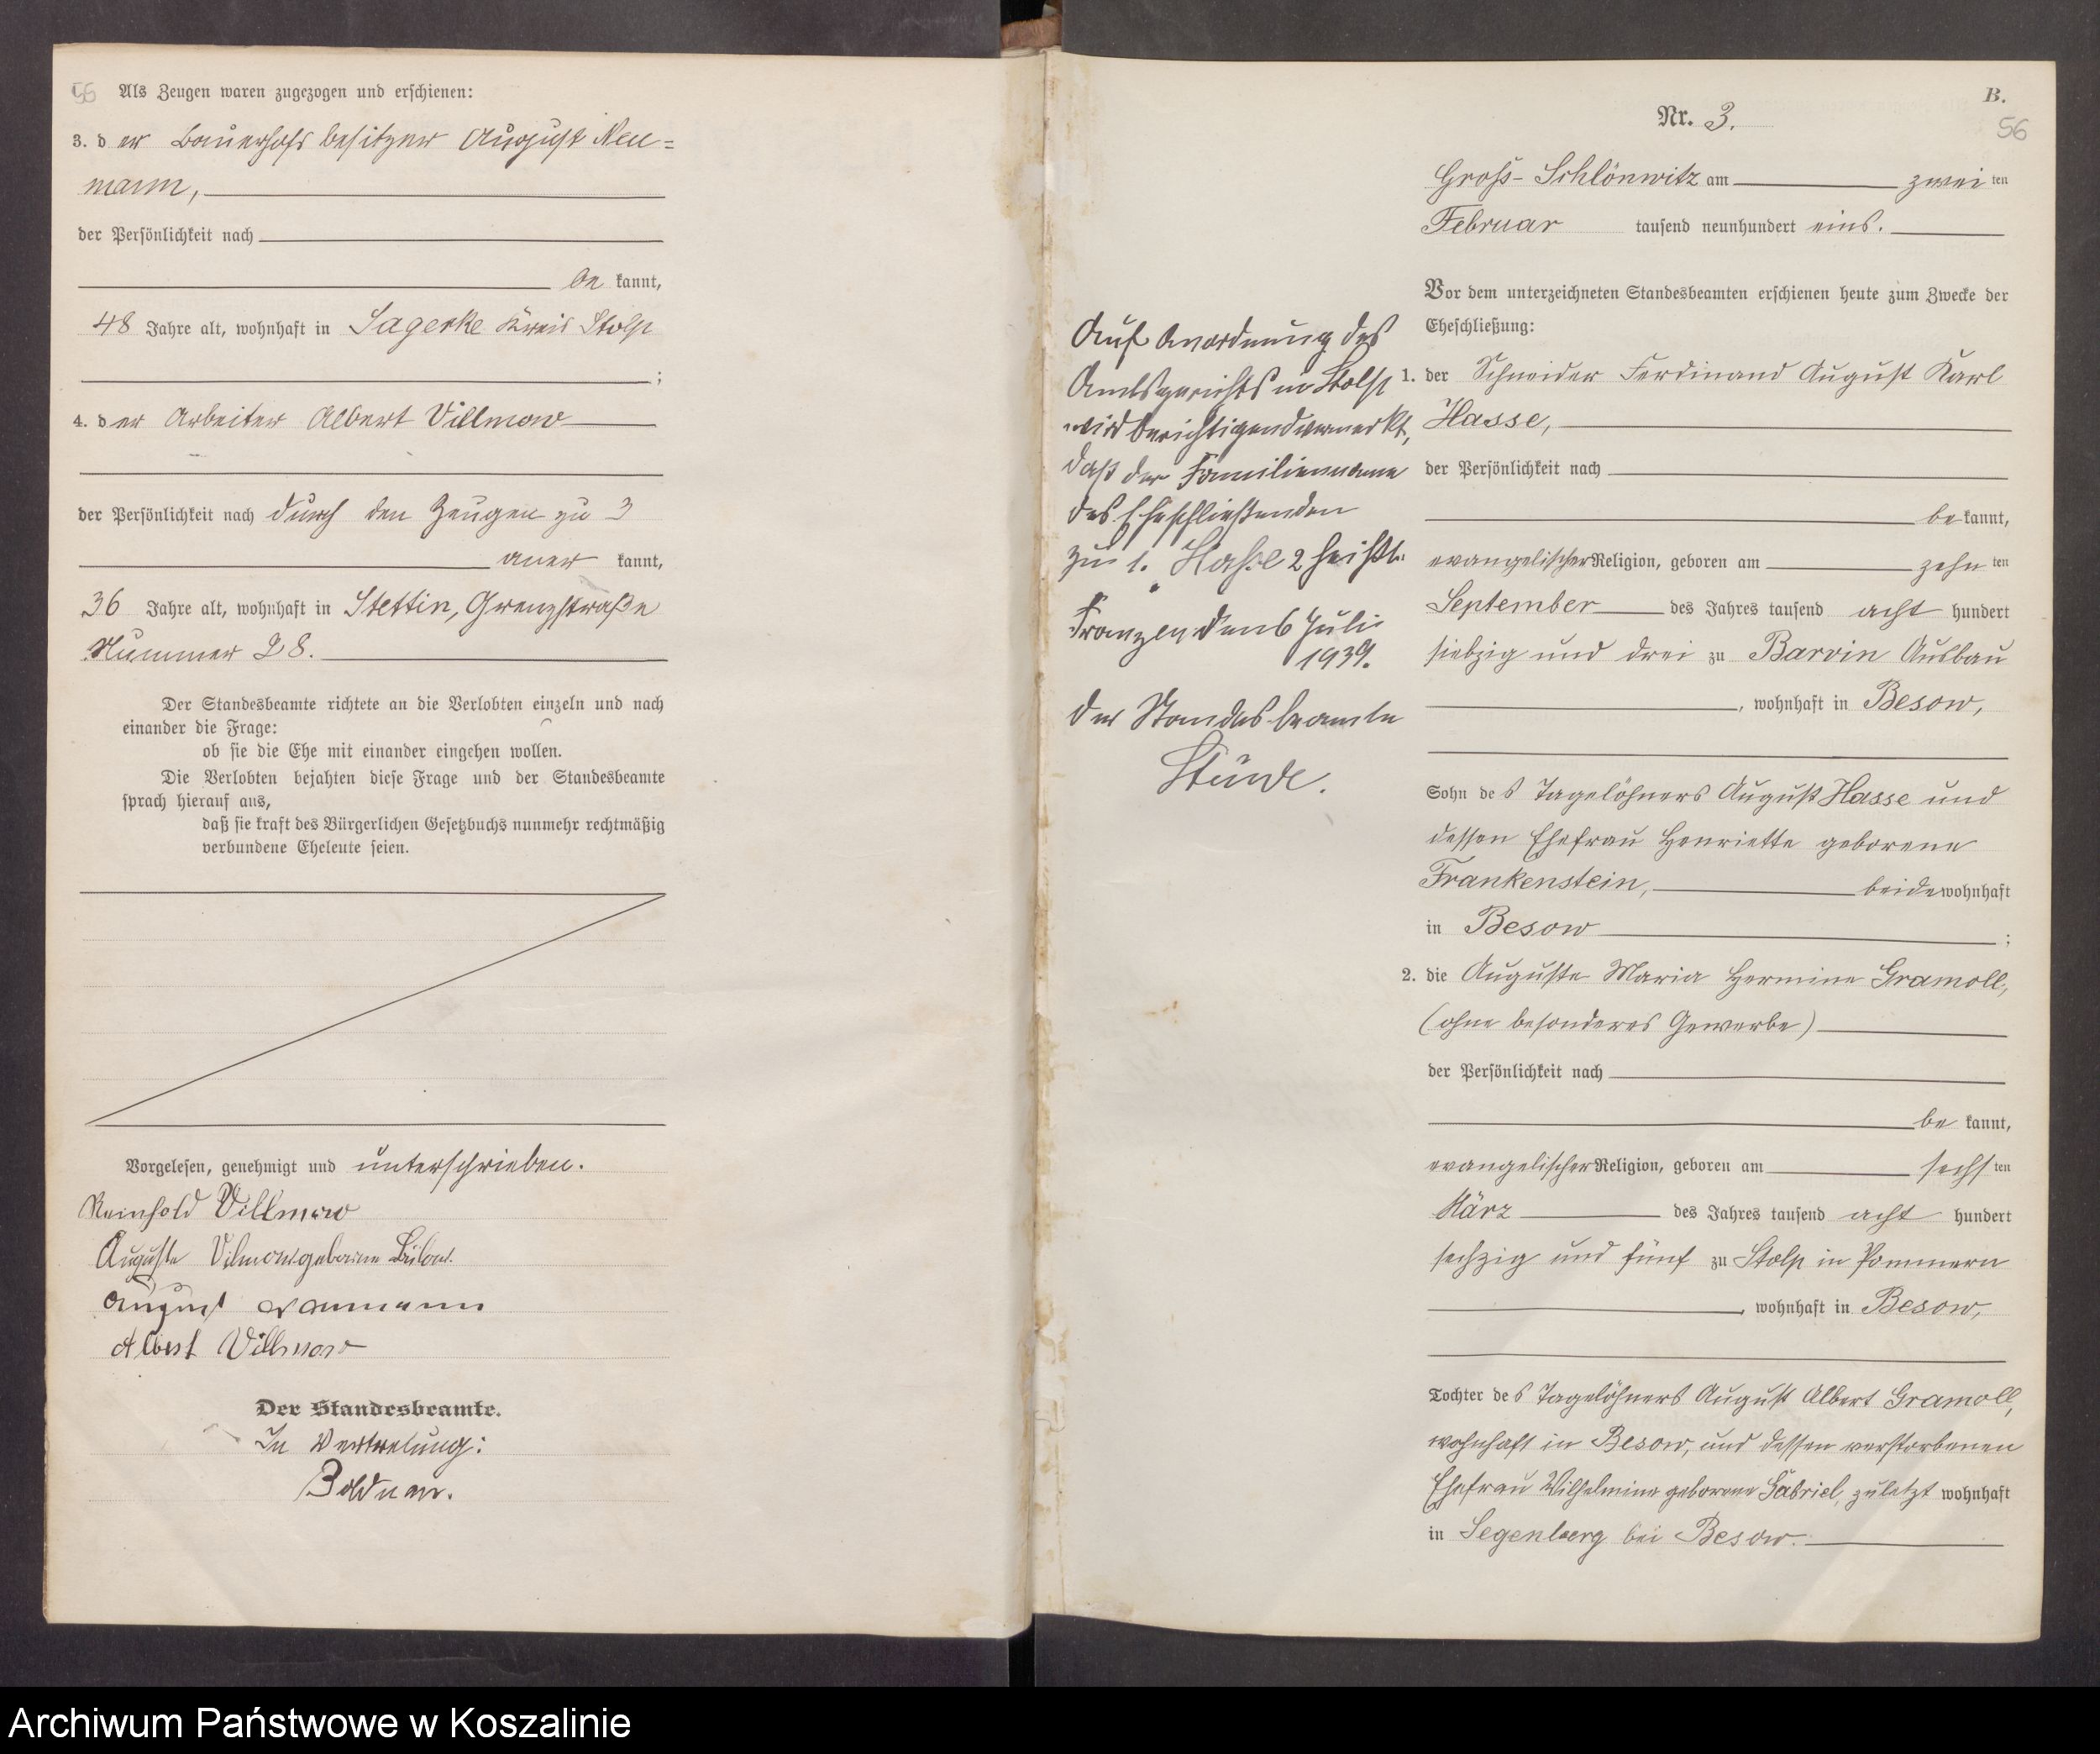 56 Als Zeugen waren zugezogen und erschienen:
3. d er Bauerhofsbesitzer August Neu=
mann,
der Persönlichkeit nach
be kannt,
48 Jahre alt, wohnhaft in Sagerke Kreis Stolp
;
4. d er Arbeiter Albert Villmow
der Persönlichkeit nach durch den Zeugen zu 3
aner kannt,
36 Jahre alt, wohnhaft in Stettin, Grenzstraße
Nummer 28.
Der Standesbeamte richtete an die Verlobten einzeln und nach
einander die Frage:
ob sie die Ehe mit einander eingehen wollen.
Die Verlobten bejahten diese Frage und der Standesbeamte
sprach hierauf aus,
daß sie kraft des Bürgerlichen Gesetzbuchs nunmehr rechtmäßig
verbundene Eheleute seien.
Vorgelesen, genehmigt und unterschrieben.
Reinhold Villmow
Auguste Vilmow geborene Bülow.
August Neumann
Albert Villmow
Der Standesbeamte.
In Vertretung:
Bolduan.
B.
56
Nr. 3.
Gross-Schlönwitz am zwei ten
Februar tausend neunhundert eins.
Vor dem unterzeichneten Standesbeamten erschienen heute zum Zwecke der
Eheschließung:
1. der Schneider Ferdinand August Karl
Hasse,
der Persönlichkeit nach
be kannt,
evangelischer Religion, geboren am zehn ten
September des Jahres tausend acht hundert
siebzig und drei zu Barvin Ausbau
, wohnhaft in Besow,
Sohn de s Tagelöhners August Hasse und
dessen Ehefrau Henriette geborene
Frankenstein, beide wohnhaft
in Besow ;
2. die Auguste Maria Hermine Gramoll,
(ohne besonderes Gewerbe)
der Persönlichkeit nach
be kannt,
evangelischer Religion, geboren am sechs ten
März des Jahres tausend acht hundert
sechzig und fünf zu Stolp in Pommern
, wohnhaft in Besow,
Tochter de s Tagelöhners August Albert Gramoll,
wohnhaft in Besow, und dessen verstorbenen
Ehefrau Wilhelmine geborene Gabriel, zuletzt wohnhaft
in Segenberg bei Besow.
Auf Anordnung des
Amtsgerichts in Stolp
wird berichtigend vermerkt,
daß der Familienname
des Eheschließenden
zu 1. Haße heißt.
Franzen, den 6 Juli
1939.
Der Standesbeamte
Stüwe.
Archiwum Państwowe w Koszalinie